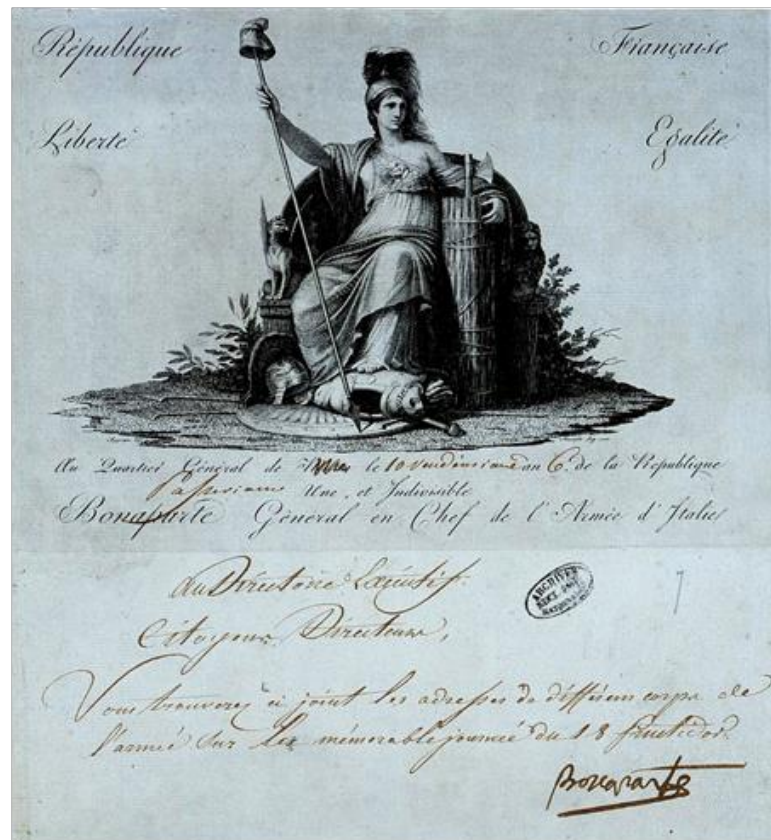 République Française
Liberté Egalité
Au Quartier Général de le 10 vendémiaire an 6. de la République
Passeriano Une, et Indivisible
Bonaparte Général en Chef de l'Armée d'Italie
Au Directoire Exécutif.
Citoyens Directeurs,
Vous trouverez ci joint les adresses de différens corps de
l'armée sur les mémorable journée du 18 fructidor.
ARCHIVES
NATIONALES
Bonaparte